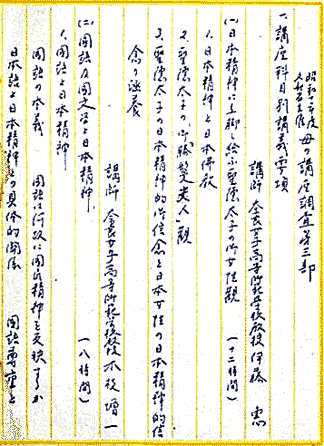 昭和十二年度 母の講座調査第三部
一、講座科目別講義要項
講師 奈良女子高等師範学校教授 伊藤 恵
(一)日本精神に立脚し給ふ聖徳太子の御女性観 (十二時間)
1、日本精神と日本佛教
2、聖徳太子の御勝鬘夫人観
3、聖徳太子の日本精神的御信念と日本女性の日本精神的信
念の涵養
講師 奈良女子高等師範学校教授 木枝増一
(二)国語及国文学と日本精神 (八時間)
1、国語と日本精神
国語の本義 国語は何故に国民精神を反映するか
日本語と日本精神との具体的関係 国語尊重と